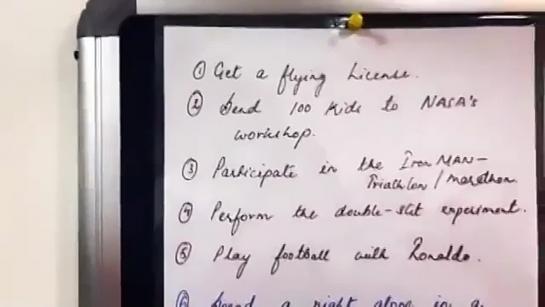 ① Get a flying License.
② Send 100 Kids to NASA's
workshop.
③ Participate in the Iron MAN-
Triathlon / marathon
④ Perform the double-slit experiment.
⑤ Play football with Ronaldo.
⑥ Spend a night alone in a